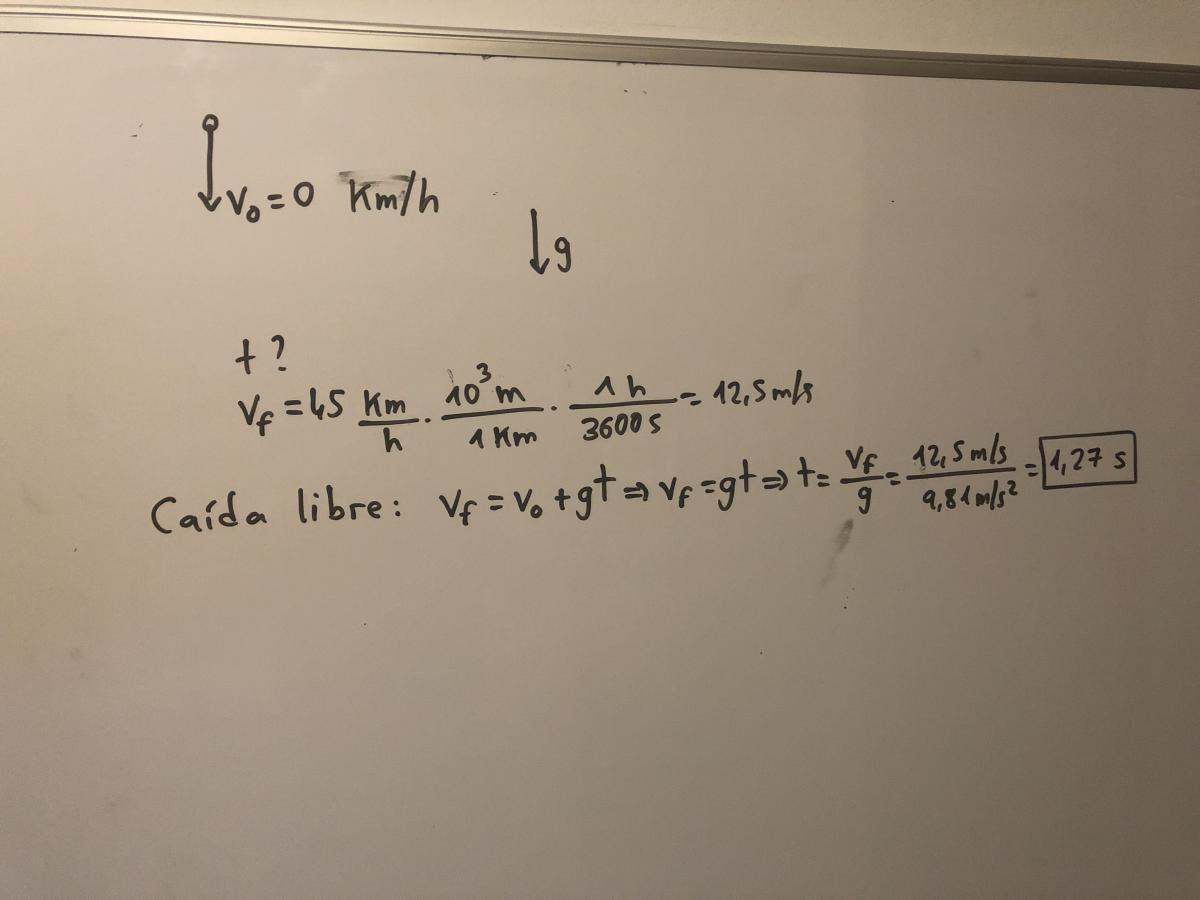 v₀ = 0 Km/h
g
t ?
v_f = 45 Km/h · 10³ m/1 Km · 1 h/3600 s = 12,5 m/s
Caída libre: v_f = v₀ + gt ⇒ v_f = gt ⇒ t = v_f/g = 12,5 m/s/9,81 m/s² = 1,27 s